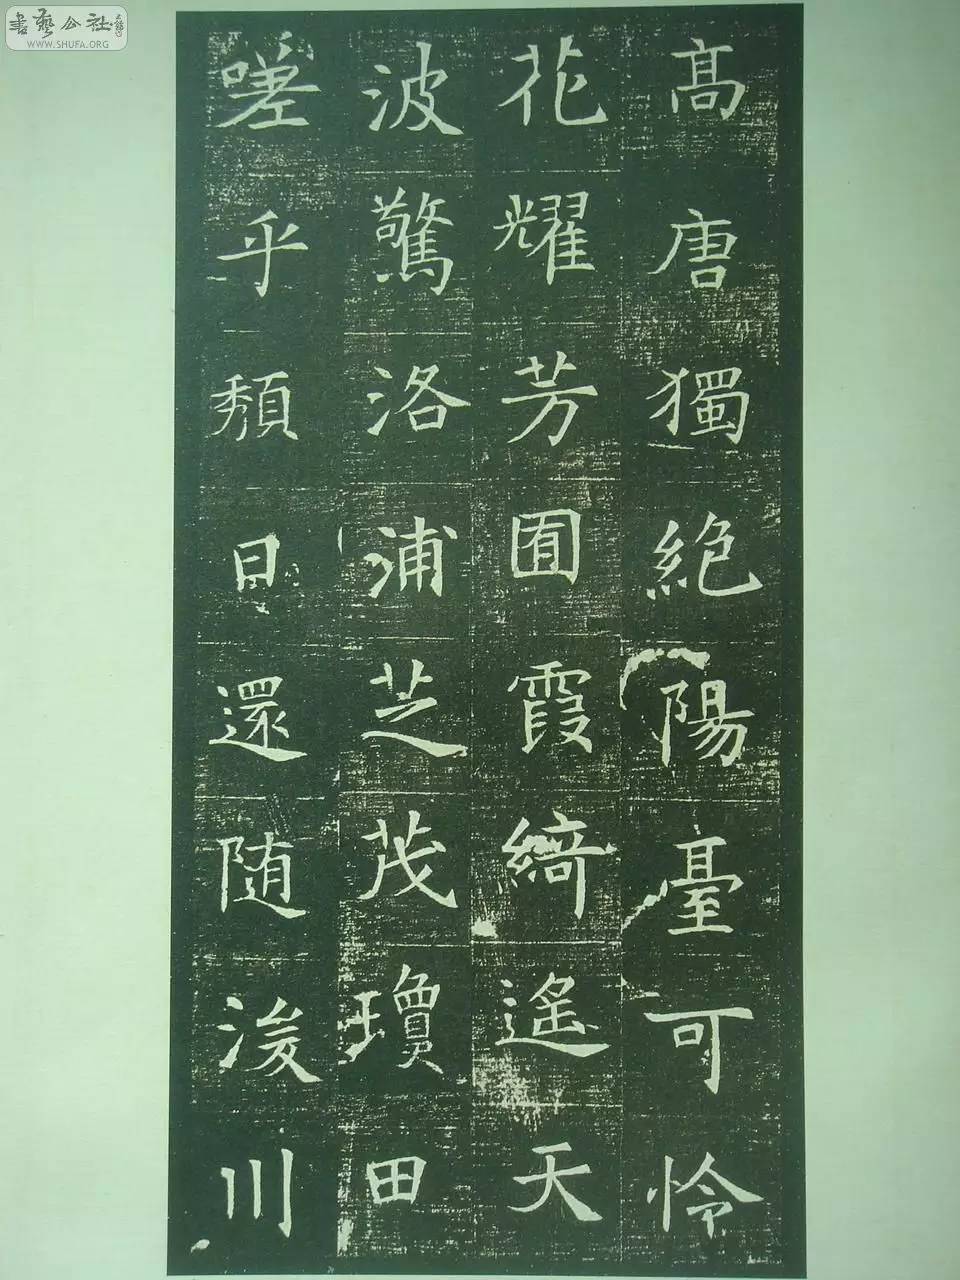 高唐獨絕陽臺可怜
花耀芳囿霞綺遙天
波驚洛浦芝茂瓊田
嗟乎頹日還随浚川
書藝公社
WWW.SHUFA.ORG